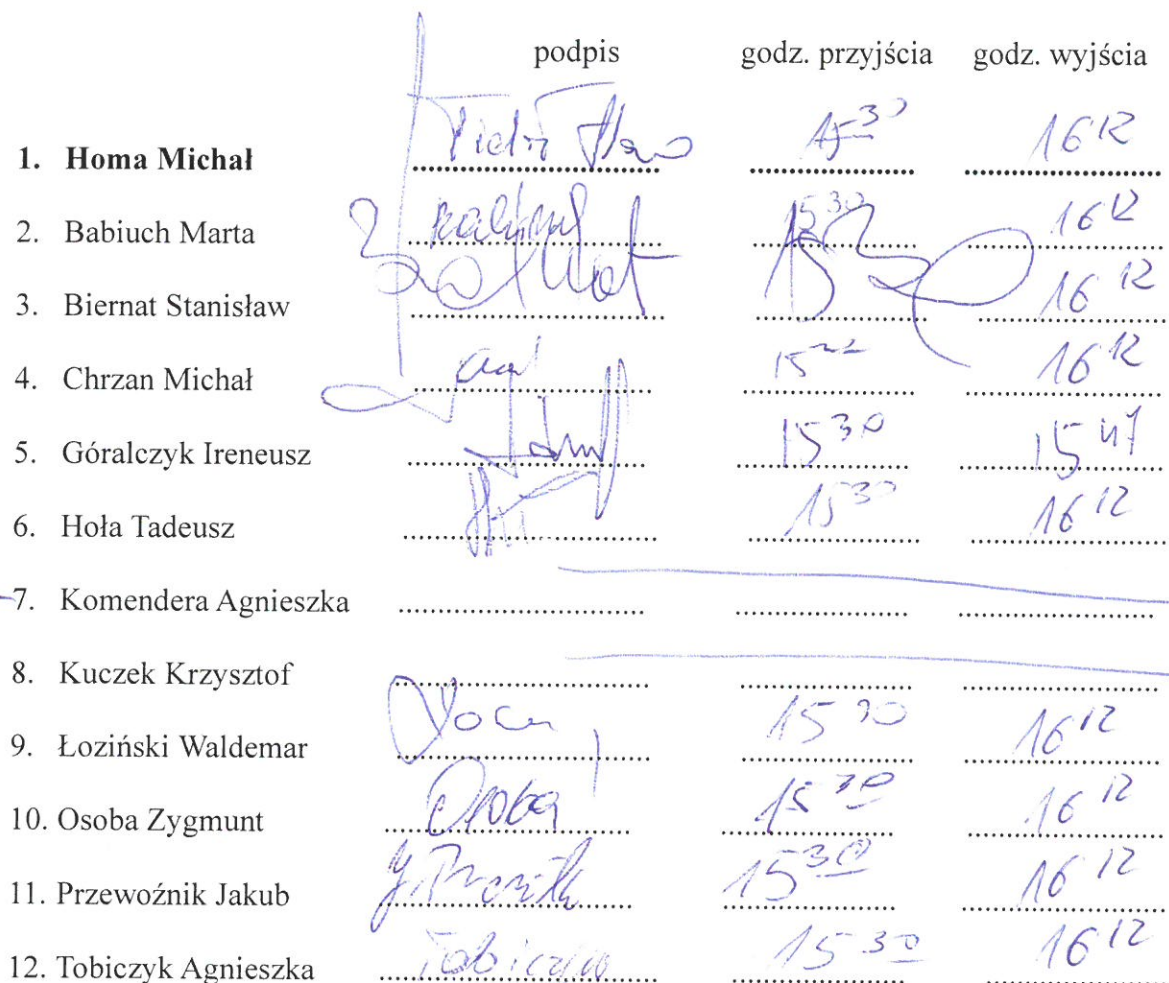 podpis godz. przyjścia godz. wyjścia
1. Homa Michał 15 30 16 12
2. Babiuch Marta 15 30 16 12
3. Biernat Stanisław 16 12
4. Chrzan Michał 16 12
5. Góralczyk Ireneusz 15 30 15 47
6. Hoła Tadeusz 15 30 16 12
7. Komendera Agnieszka
8. Kuczek Krzysztof
9. Łoziński Waldemar 15 30 16 12
10. Osoba Zygmunt Osoba 15 30 16 12
11. Przewoźnik Jakub 15 30 16 12
12. Tobiczyk Agnieszka 15 30 16 12